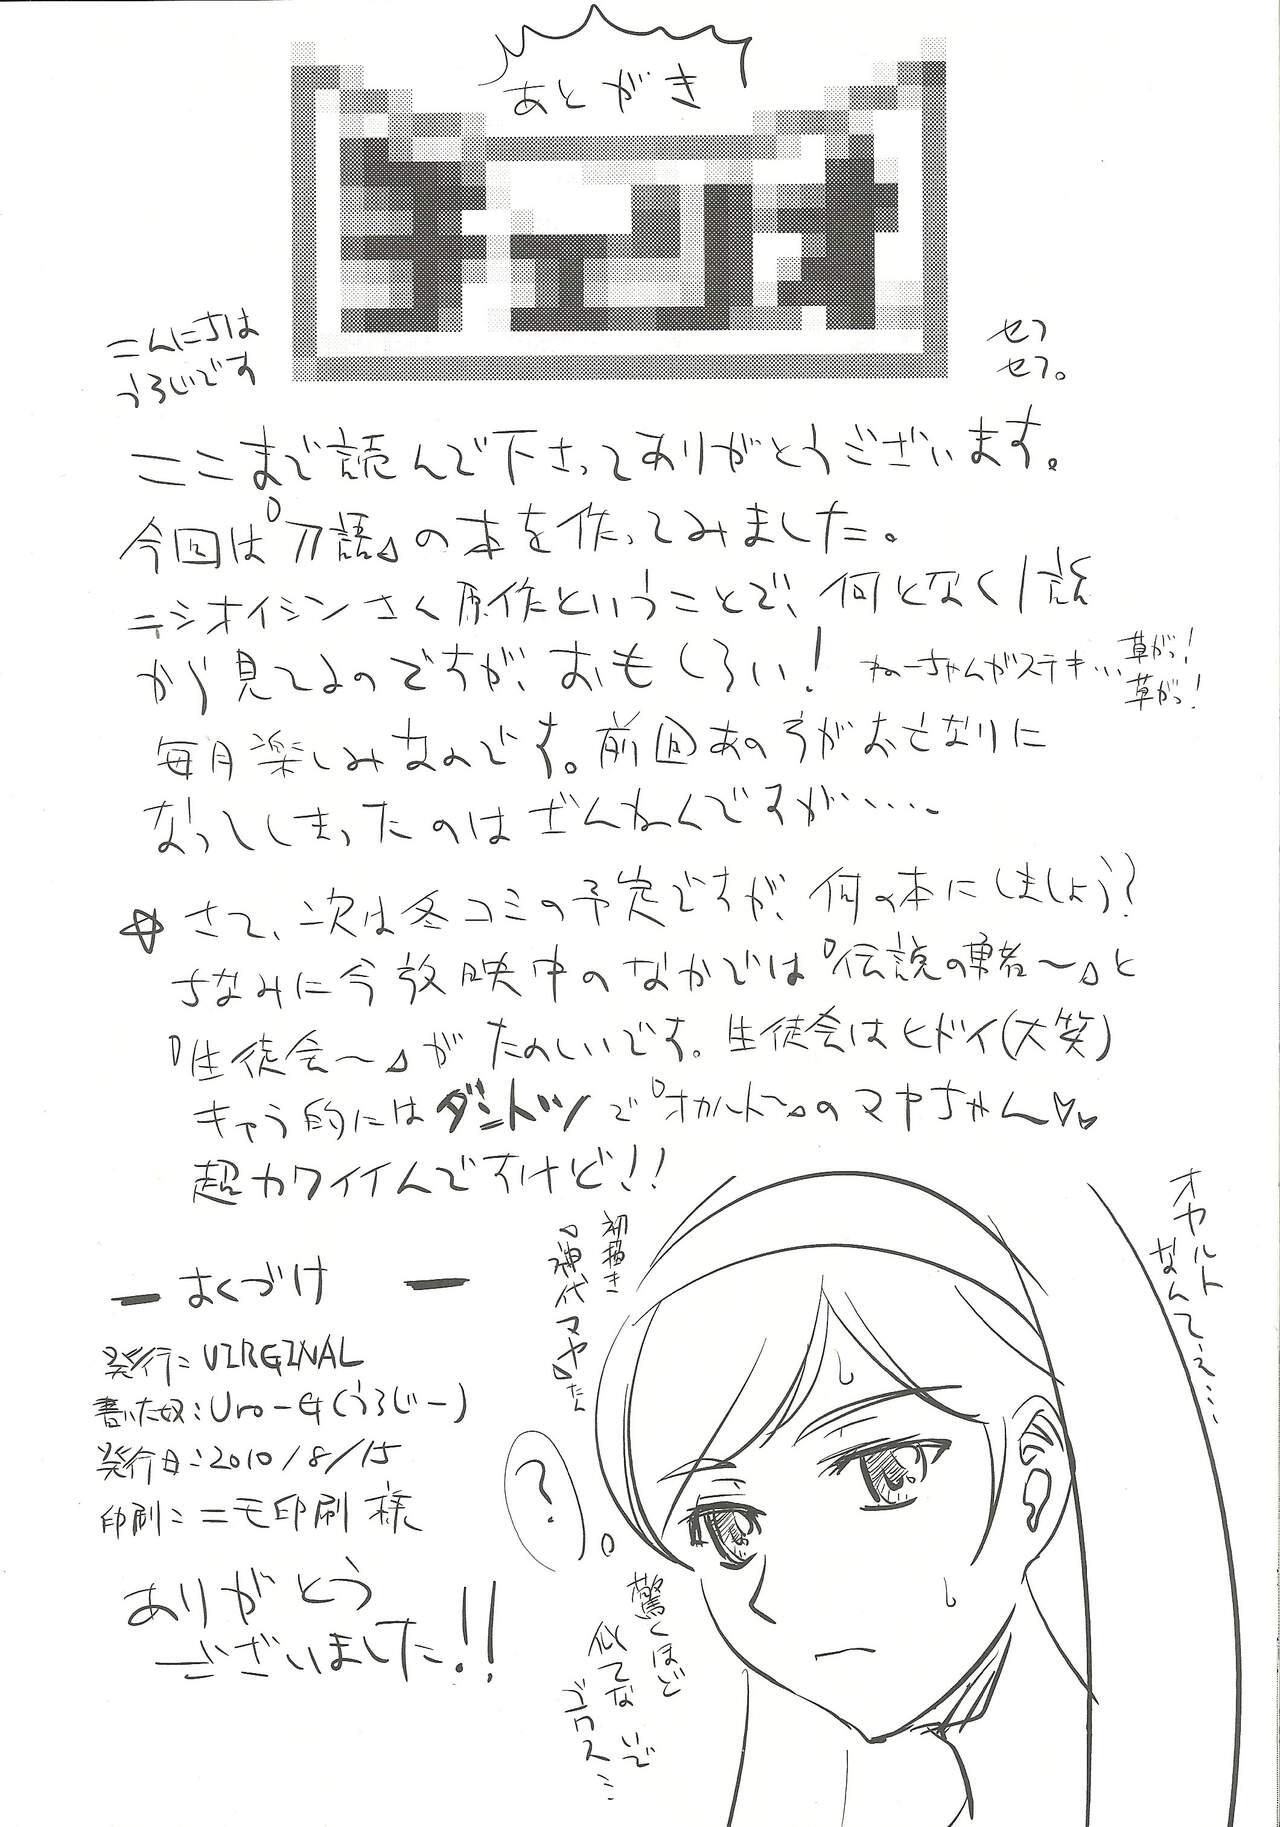 あとがき
チェンゲ
こんにちは
うろじです
セフ
セフ。
ここまで読んで下さってありがとうございます。
今回は『刀語』の本を作ってみました。
ニシオイシンさく原作ということで、何となく1話
から見てるのですが、おもしろい！
ねーちゃんがステキ…草がっ！
草がっ！
毎月楽しみなのです。前回あの方がおもなりに
なってしまったのはざんねんですが‥‥‥
☆さて、次は冬コミの予定ですが、何の本にしましょう?
ちなみに今放映中のなかでは『伝説の勇者〜』と
『生徒会〜』がたのしいです。生徒会はヒドイ(大笑)
キャラ的にはダントツで『オカルト〜』のマヤちゃん♡♡
超カワイイんですけど!!
オカルト
なんてぇ…
初描き
『神代マヤ』たん
?
驚くほど
似てないで
ゴワス…
ー おくづけ ー
発行:VIRGINAL
書いた奴:Uro-G(うろじー)
発行日:2010/8/15
印刷:ニモ印刷様
ありがとう
ございました!!